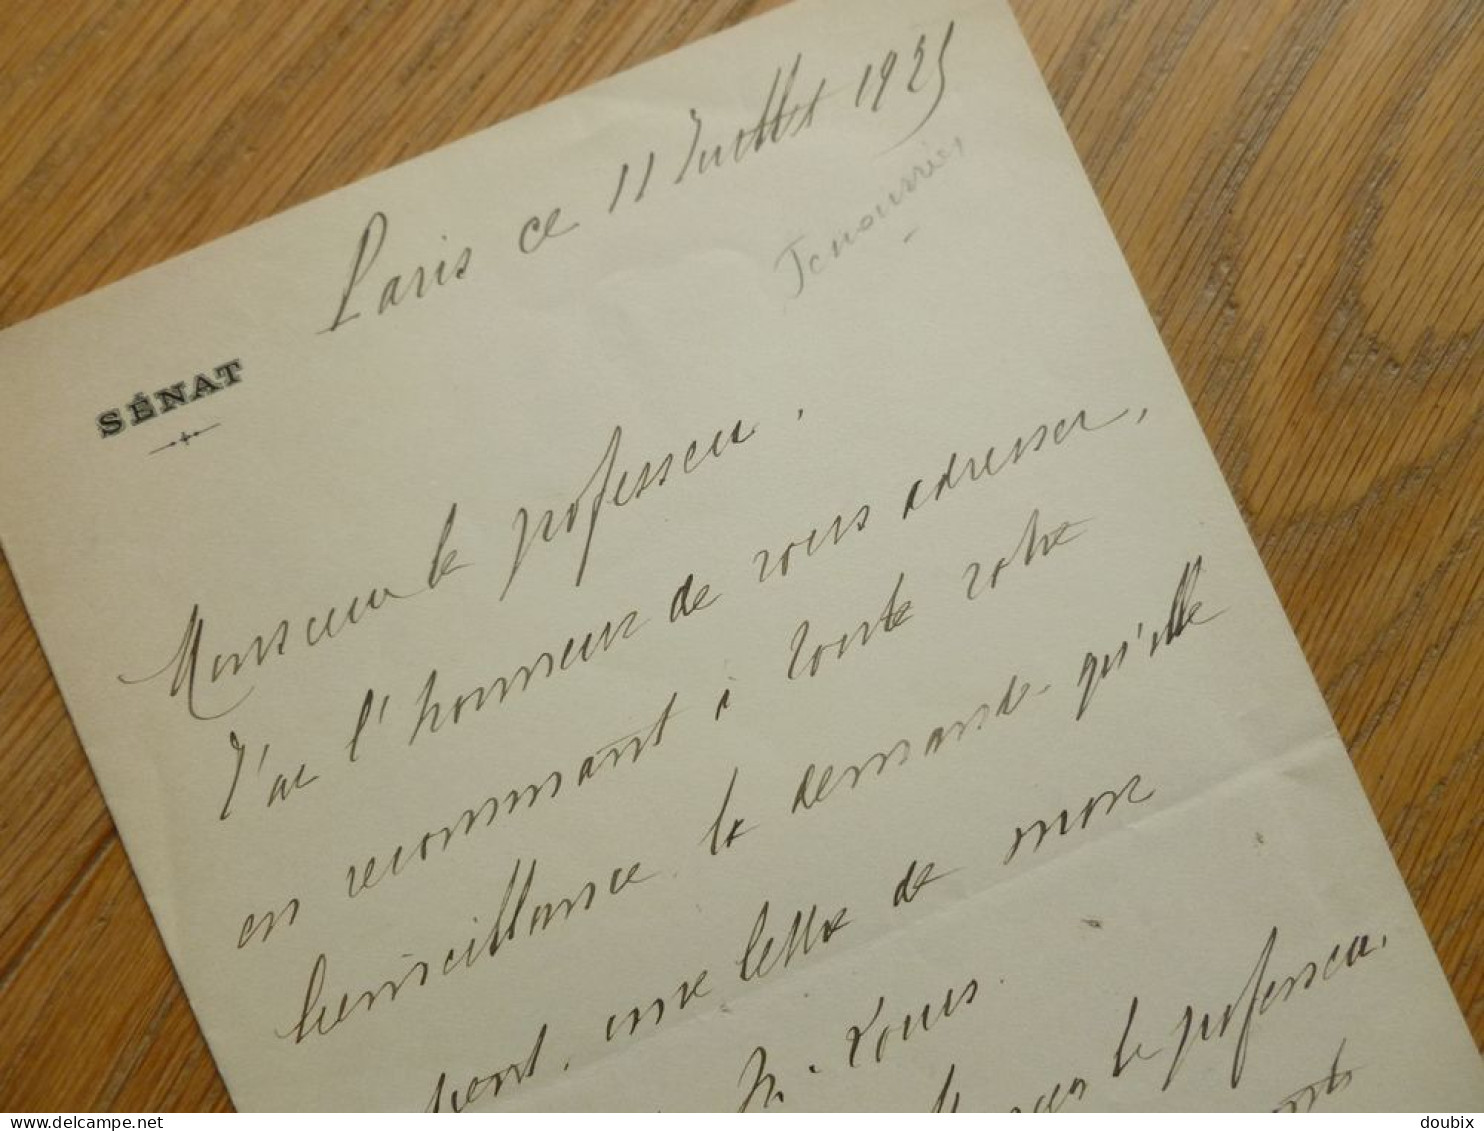 Paris ce 11 Juillet 1925
SÉNAT
Monsieur le professeur,
J'ai l'honneur de vous adresser,
en recommandant à toute votre
bienveillance la demande qu'elle
une lettre de mon
M. Louis.
le professeur,
delcampe.net
doubix